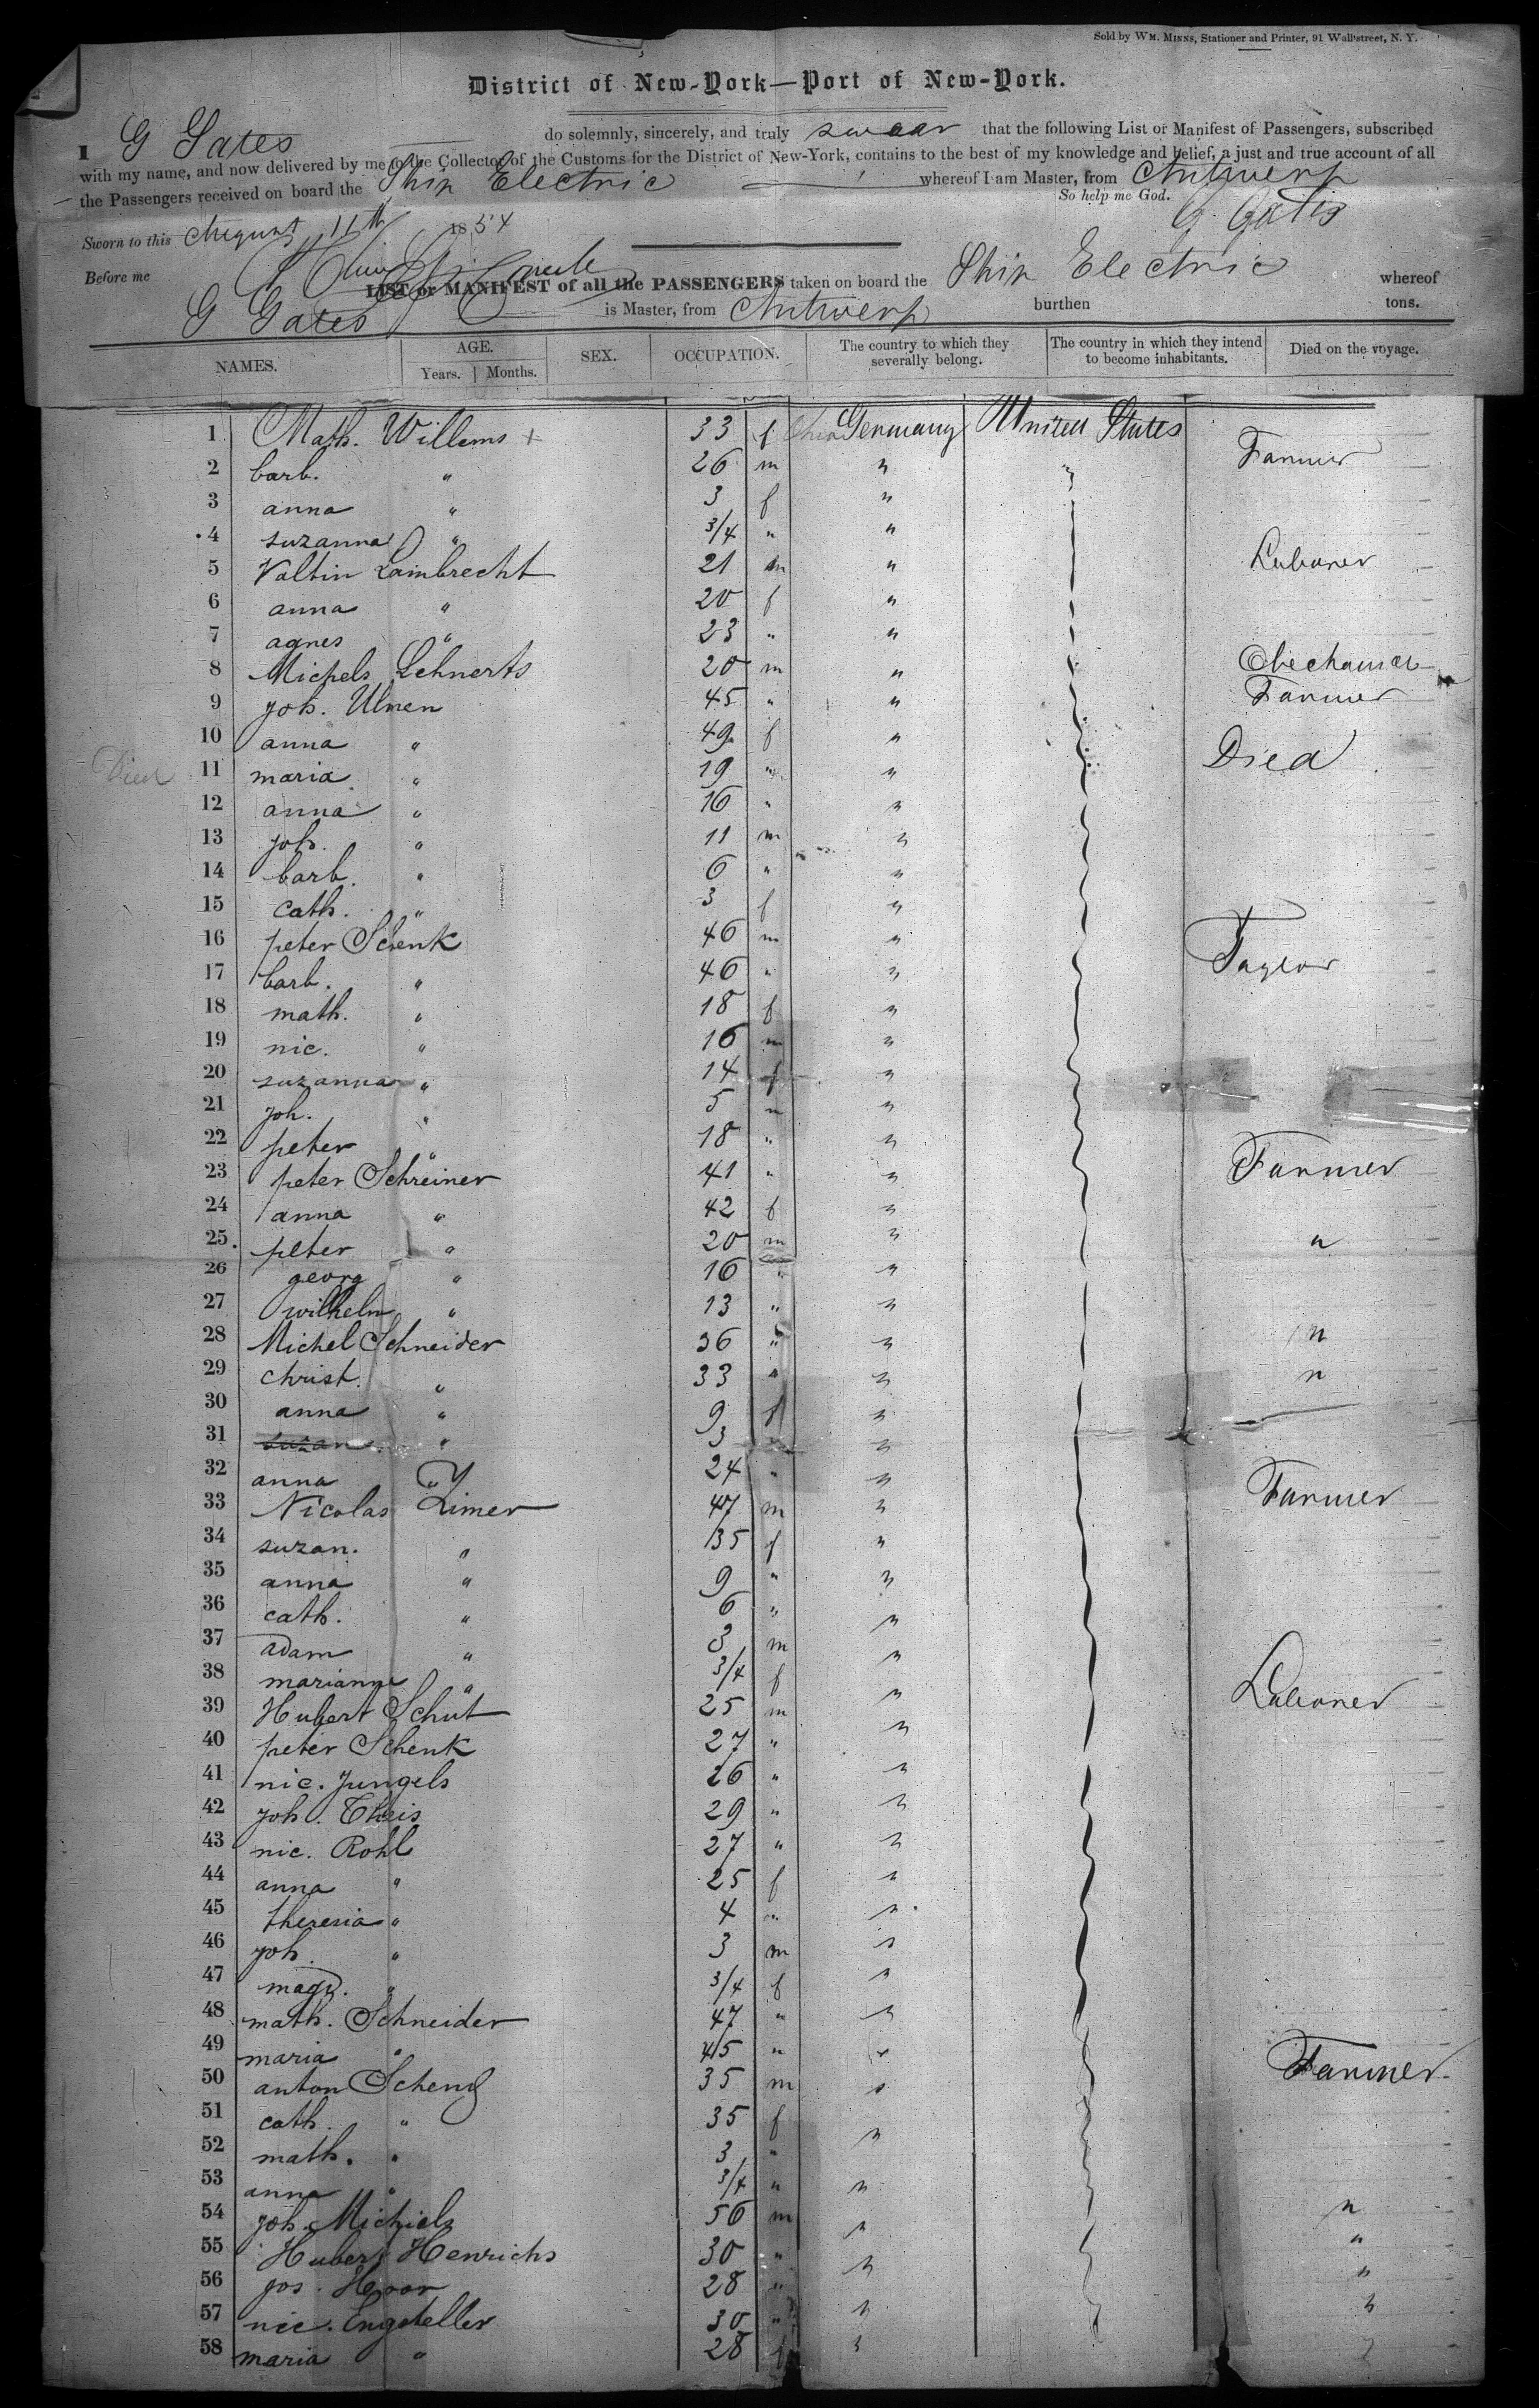 Sold by WM. MINNS, Stationer and Printer, 91 Wall street, N. Y.
District of New-York—Port of New-York.
I G Gates do solemnly, sincerely, and truly swear that the following List or Manifest of Passengers, subscribed
with my name, and now delivered by me to the Collector of the Customs for the District of New-York, contains to the best of my knowledge and belief, a just and true account of all
the Passengers received on board the Ship Electric whereof I am Master, from Antwerp
So help me God.
Sworn to this August 11th 1854 G. Gates
Before me
LIST or MANIFEST of all the PASSENGERS taken on board the Ship Electric whereof
G Gates is Master, from Antwerp burthen tons.
NAMES. AGE. Years. Months. SEX. OCCUPATION. The country to which they severally belong. The country in which they intend to become inhabitants. Died on the voyage.
1 Math. Willems + 33 f Germany United States
2 barb. " 26 m " " Farmer
3 anna " 3 f "
4 suzanna " 3/4 " "
5 Valtin Lambrecht 21 m " Laborer
6 anna " 20 f "
7 agnes " 23 " "
8 Michels Lehnerts 20 m " Mechanic
9 joh. Ulmen 45 " " Farmer
10 anna " 49 f "
Died 11 maria " 19 " " Died
12 anna " 16 " "
13 joh. " 11 m "
14 barb. " 6 " "
15 cath. " 3 f "
16 peter Schenk 46 m " Taylor
17 barb. " 46 " "
18 math. " 18 f "
19 nic. " 16 m "
20 suzanna " 14 f "
21 joh. " 5 m "
22 peter " 18 " "
23 peter Schreiner 41 " " Farmer
24 anna " 42 f "
25 peter " 20 m " "
26 georg " 16 " "
27 wilhelm " 13 " "
28 Michel Schneider 36 " " "
29 christ. " 33 " " "
30 anna " 9 f "
31 suzan. " 3 " "
32 anna " 24 " "
33 Nicolas Zimer 47 m " Farmer
34 suzan. " 35 f "
35 anna " 9 " "
36 cath. " 6 " "
37 adam " 3 m "
38 marianne " 3/4 f "
39 Hubert Schut 25 m " Laborer
40 peter Schenk 27 " "
41 nic. Jungels 26 " "
42 joh. Theis 29 " "
43 nic. Rohl 27 " "
44 anna " 25 f "
45 theresia " 4 " "
46 joh. " 3 m "
47 magd. " 3/4 f "
48 math. Schneider 47 " "
49 maria " 45 " "
50 anton 35 m " Farmer
51 cath. " 35 f
52 math. " 3 " "
53 anna " 3/4 " "
54 joh. Michiels 56 m " "
55 Hubert Henrichs 30 " " "
56 jos. 28 " "
57 nic. Engsteller 30 " " "
58 maria " 28 f "